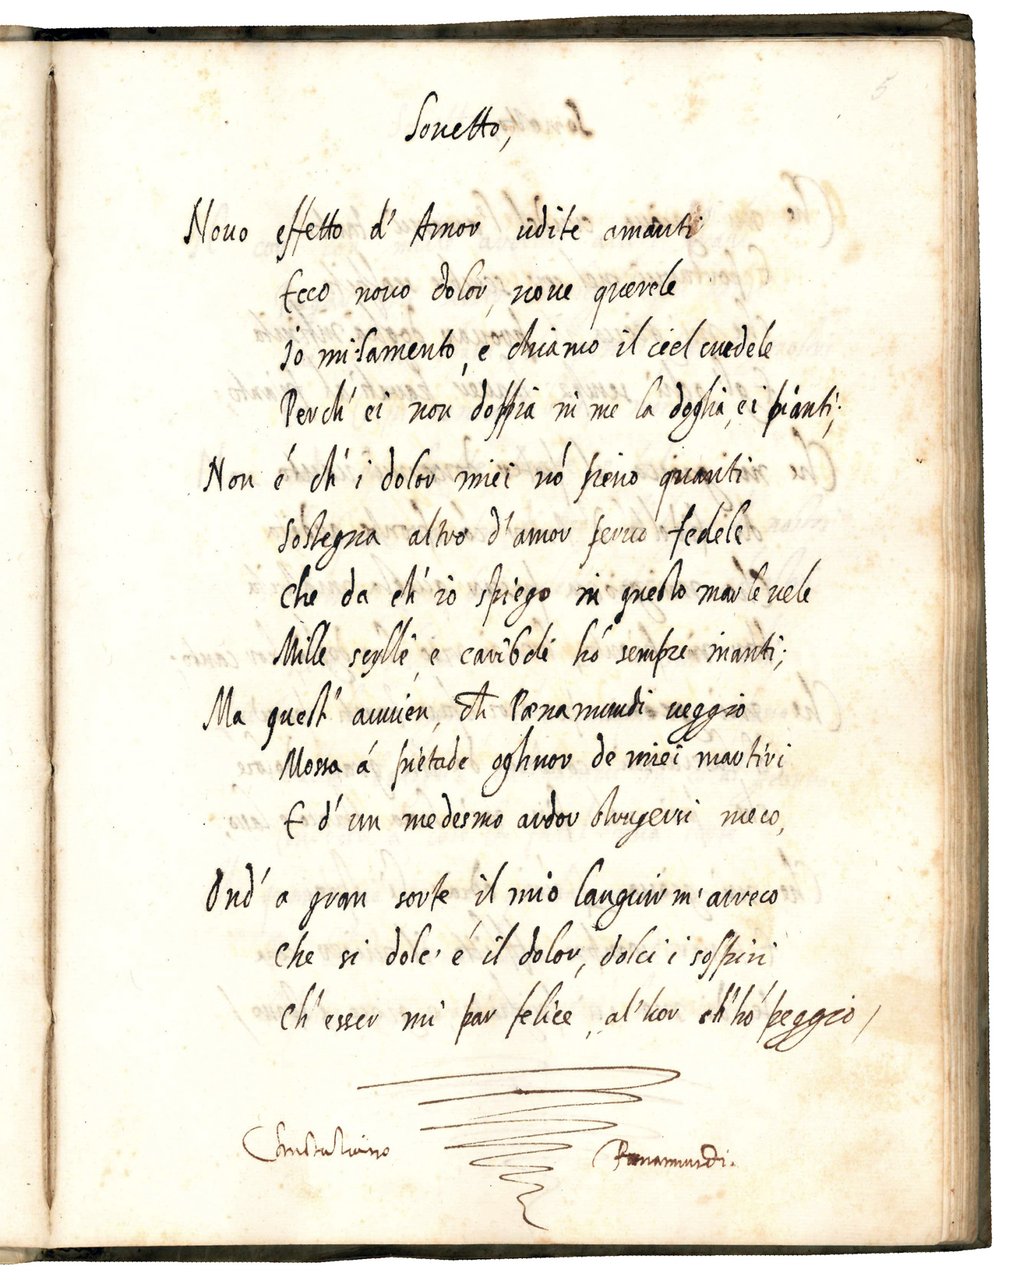 5
Sonetto,
Nouo effetto d' Amor udite amanti
Ecco nouo dolor, noue querele
Io mi lamento, e chiamo il ciel crudele
Perch' ei non doppia in me la doglia, e i pianti;
Non é ch' i dolor miei nó sieno quanti
Sostegna altro d' amor seruo fedele
Che da ch' io spiego in questo mar le uele
Mille scylle, e caribdi hó sempre inanti;
Ma quest' auuien, ch Pænamundi ueggio
Mossa á pietade oghnor de miei martiri
E d' un medesmo ardor strugersi meco,
Ond' a gran sorte il mio languir m' arreco
Che si dolc' é il dolor, dolci i sospiri
Ch' esser mi par felice, al' hor ch' hó peggio /
Pænamundi.